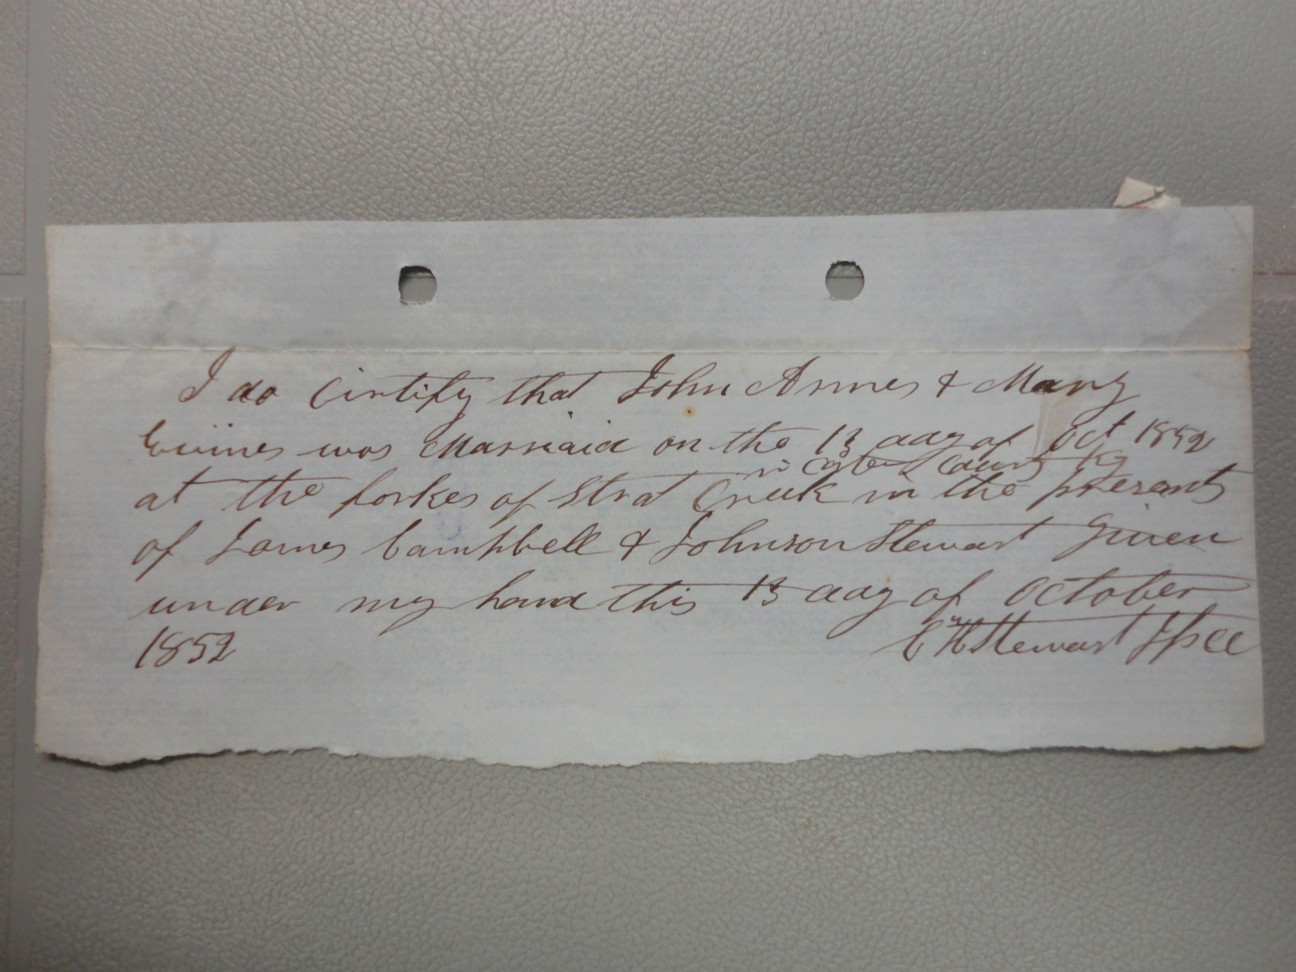 I do Cirtify that John Armes & Mary
was Marriaid on the 13 day of Oct 1852
in County Ky
at the forkes of Strat Creek in the presents
of James Campbell & Johnson Stewart Given
under my hand this 13 day of October
1852
Stewart